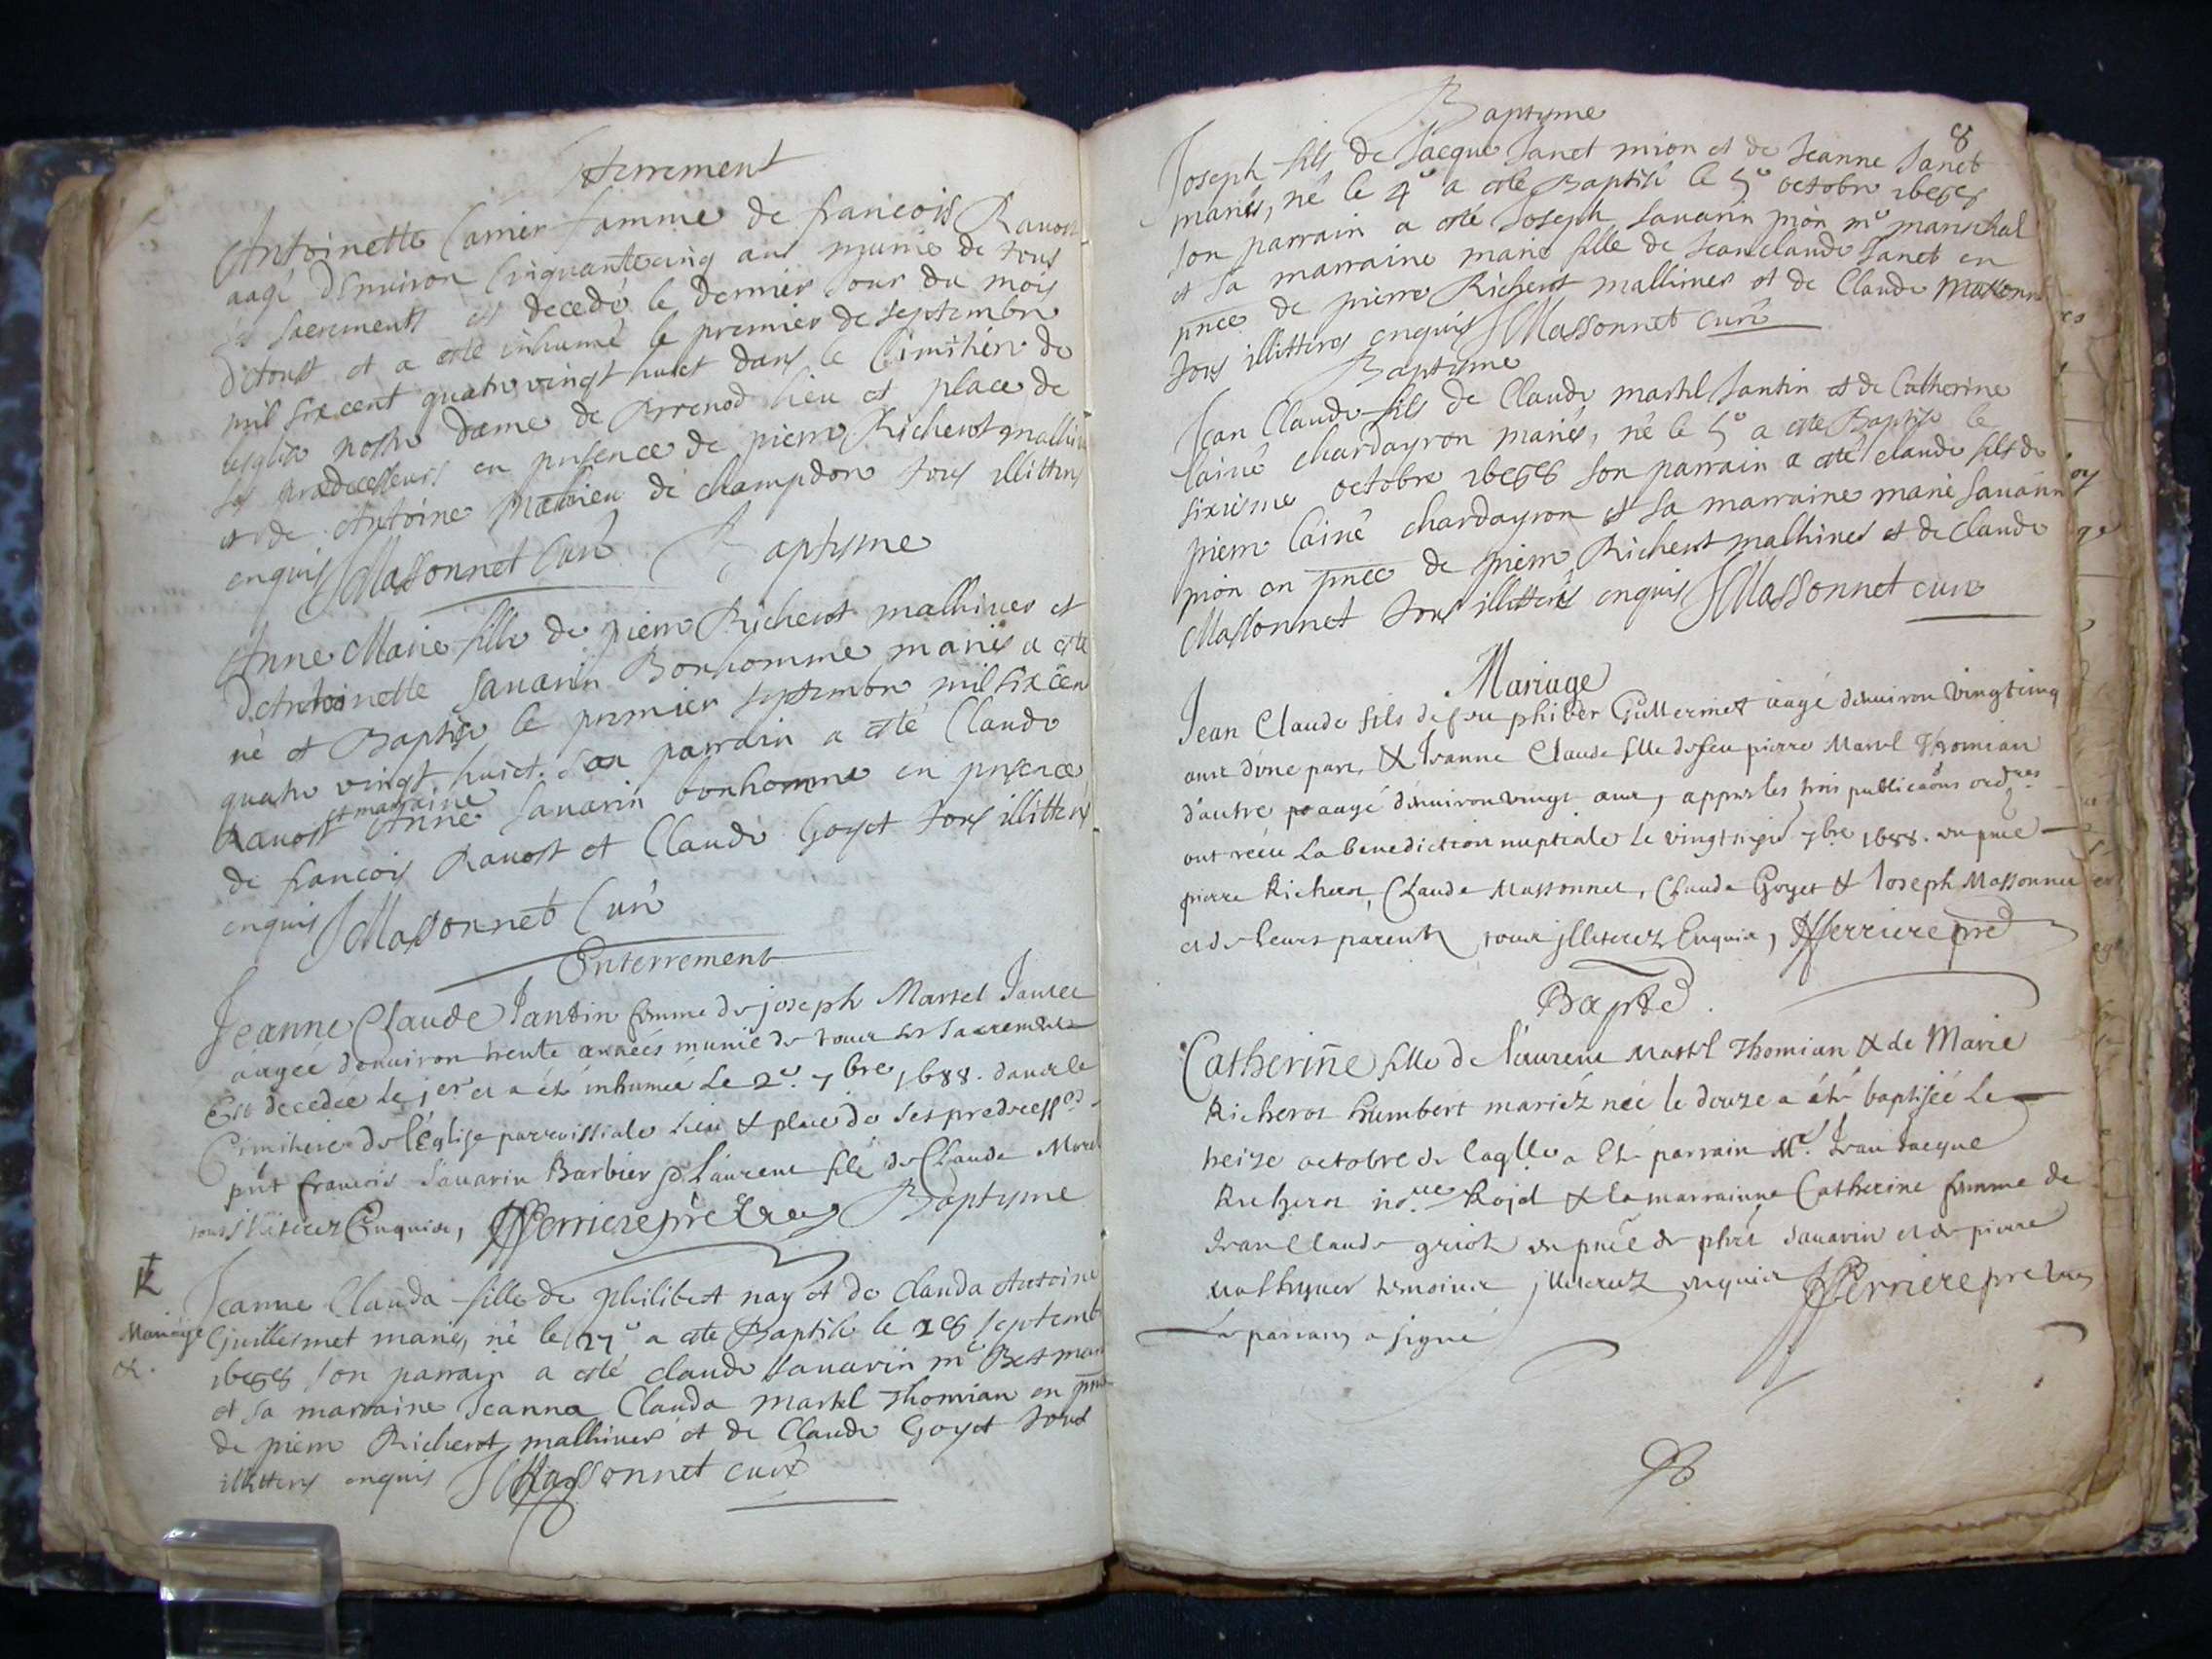 Enterrement
Antoinette Carrier famme de francois Ravost
aagé denviron cinquantecinq ans munie de tous
ses sacrements est decedé le dernier jour du mois
d'Aoust et a esté inhumé le premier de septembre
mil six cent quatre vingt huict dans le Cimitiere de
lesglise nostre dame de Brenod lieu et place de
ses prædecesseurs en presence de pierre Richerot
et de Antoine de champdor tous illitterés
enquis JMassonnet Curé
Baptisme
Anne Marie fille de pierre Richerot malhines et
d'Antoinette Savarin Bonhomme mariés a esté
né et Baptisé le premier septembre mil six cen
quatre vingt huict. son parrain a esté Claude
Ravost et marraine Anne Savarin bonhomme en presence
de francois Ravost et Claude Goyet tous illitterés
enquis JMassonnet Curé
Enterrement
Jeanne Claude Jantin femme de joseph Martel Jantet
aagée denviron trente années munie de tous ses sacremens
Est decedée le jer et a été inhumée Le 2e 7bre 1688. dans le
Cimitiere de lEglise parroissiale lieu & place de ses
pnt francois Savarin Barbier & Laurent fils de Claude Morel
tous illiterez Enquis, Ferriere prêtre
Baptisme
Mariage
&.
Jeanne Clauda fille de philibert nay et de Clauda Antoine
Guillermet mariés, né le 27e a esté Baptisé le 28 septemb
1688 son parrain a esté claude savarin me
et sa marraine Jeanna Clauda martel Thomian en pnce
de pierre Richerot malhines et de Claude Goyet tous
illitterés enquis JMassonnet curé
8
Baptisme
Joseph fils de Jacque Janet mion et de Jeanne Janet
mariés, né le 4e a esté Baptisé le 5e octobre 1688
son parrain a esté Joseph savarin pion me mareschal
et sa marraine marie fille de Jeanclaude Janet en
pnce de pierre Richerot malhines et de Claude Massonnet
tous illitterés enquis JMassonnet curé
Baptisme
Jean Claude fils de Claude martel Jantin et de Catherine
lainé chardayron mariés, né le 5e a esté Baptisé le
sixiesme octobre 1688 son parrain a esté claude fils de
pierre lainé chardayron et sa marraine marie savarin
pion en pnce de pierre Richerot malhines et de claude
Massonnet tous illitterés enquis JMassonnet curé
Mariage
Jean Claude fils de feu philibèr Gullermet aagé denviron vingtcinq
ans d'une part, & Jeanne Claude fille de feu pierre Martel Thomian
d'autre aagé denviron vingt ans, appres les trois publicaons ordres
ont receu La benediction nuptiale le 7bre 1688. en pnce
pierre Richerot, Claude Massonnet, Claude Goyet & Joseph Massonnet
et de leurs parents tous jlliterez Enquis, Ferriere pre
Bapte.
Catherine fille de Laurent Martel Thomian & de Marie
Richerot humbert mariéz née le douze a été baptisée Le
treize octobre de laqlle a Eté parrain Mr. Jean Jacque
Richerot nore Roial & la marrainne Catherine femme de
Jean Claude griot en pnce de phet savarin et de pierre
temoins jlliterez enquis Ferriere pretre
Le parrain a signé